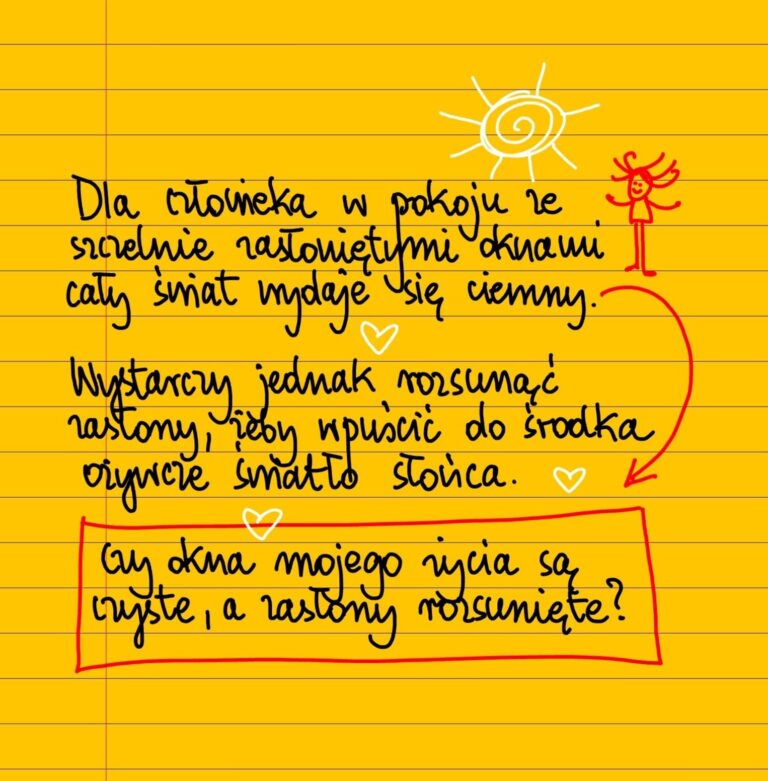 Dla człowieka w pokoju ze
szczelnie zasłoniętymi oknami
cały świat wydaje się ciemny.
Wystarczy jednak rozsunąć
zasłony, żeby wpuścić do środka
ożywcze światło słońca.
Czy okna mojego życia są
czyste, a zasłony rozsunięte?